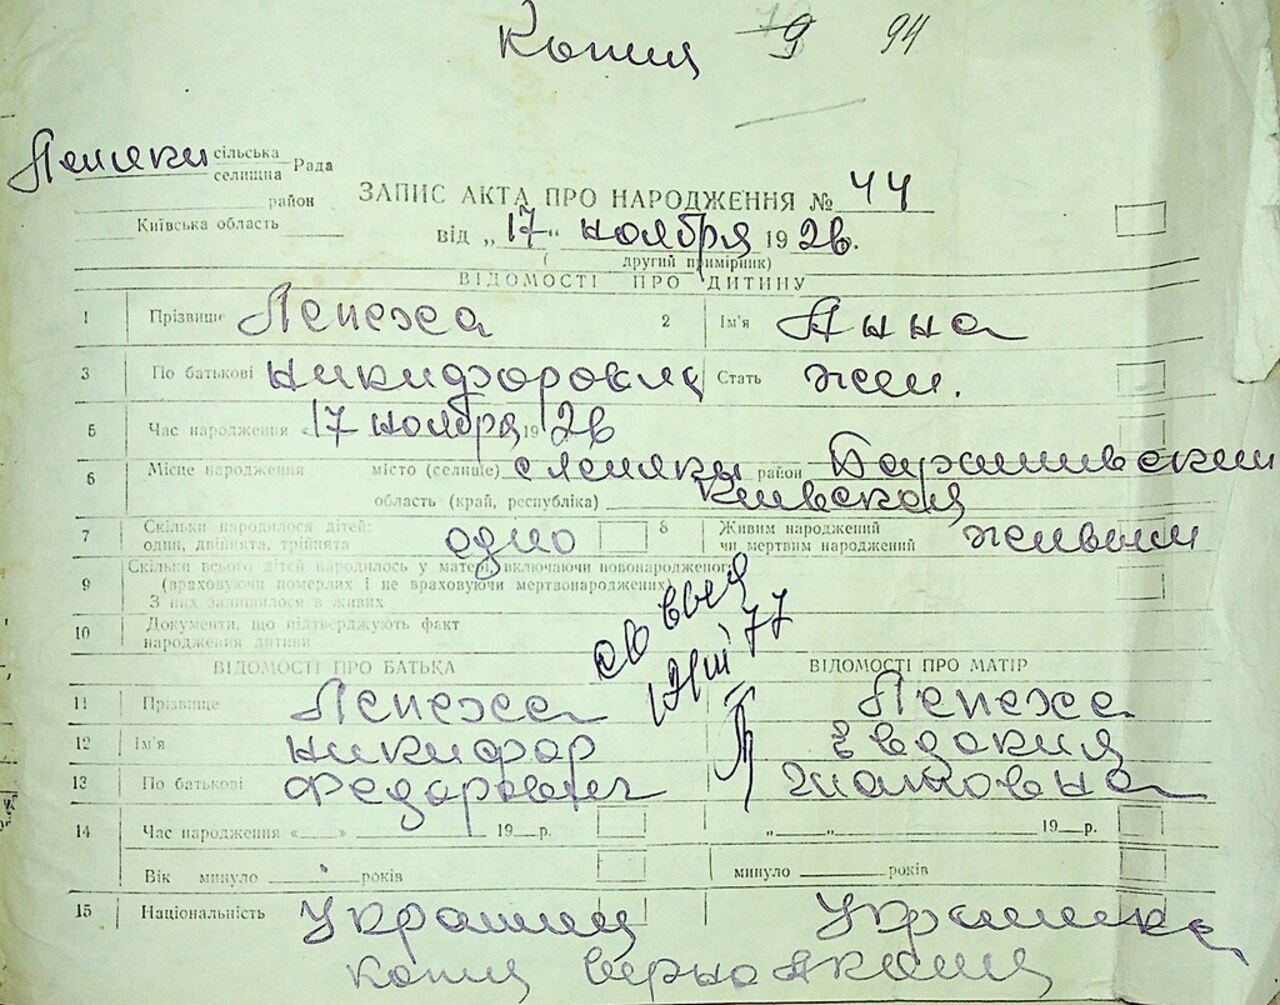 Копия 9 94
Пеняки сільська
селищна Рада
район
Київська область
ЗАПИС АКТА ПРО НАРОДЖЕННЯ № 44
від „17“ ноября 1926.
(другий примірник)
ВІДОМОСТІ ПРО ДИТИНУ
1 Прізвище Лепеха 2 Ім'я Анна
3 По батькові Никифоровна Стать жен.
5 Час народження « 17 ноября 1926
6 Місце народження місто (селище) район
область (край, республіка) Киевская
7 Скільки народилося дітей: одно 8 Живим народжений живым
один, двійнята, трійнята чи мертвим народжений
9 Скільки всього дітей народилось у матері, включаючи новонародженого
(враховуючи померлих і не враховуючи мертвонароджених)
З них залишилося в живих
10 Документи, що підтверджують факт
народження дитини
77
ВІДОМОСТІ ПРО БАТЬКА ВІДОМОСТІ ПРО МАТІР
11 Прізвище Лепеха Лепеха
12 Ім'я Никифор Евдокия
13 По батькові Федорович
14 Час народження «___» 19__р. „___„ 19__р.
Вік минуло років минуло років
15 Національність Украинец Украинка
копия верна